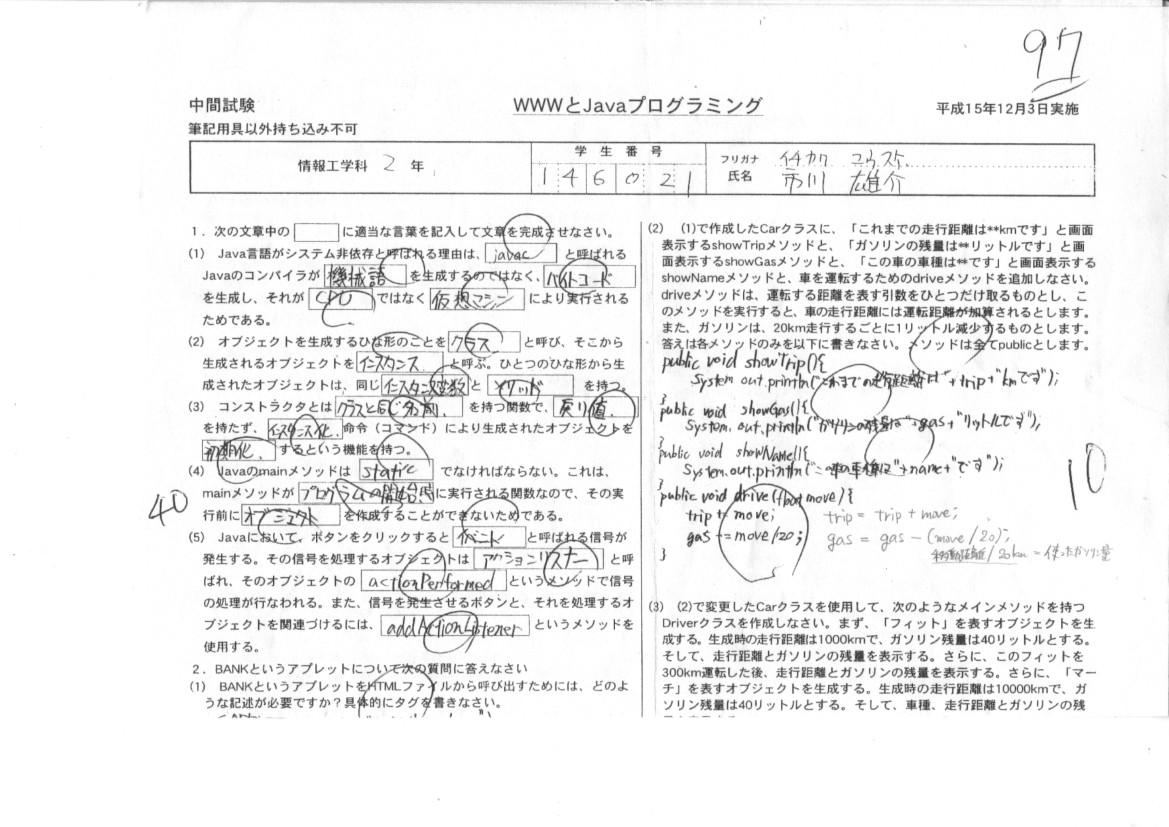 97
中間試験
WWWとJavaプログラミング
平成15年12月3日実施
筆記用具以外持ち込み不可
情報工学科 2 年
学生番号
146021
フリガナ イチカワ ユウスケ
氏名 市川 雄介
1．次の文章中の に適当な言葉を記入して文章を完成させなさい。
(1) Java言語がシステム非依存と呼ばれる理由は、 javac と呼ばれる
Javaのコンパイラが 機械語 を生成するのではなく、 バイトコード
を生成し、それが CPU ではなく 仮想マシン により実行される
ためである。
(2) オブジェクトを生成するひな形のことを クラス と呼び、そこから
生成されるオブジェクトを インスタンス と呼ぶ。ひとつのひな形から生
成されたオブジェクトは、同じ インスタンス変数 と メソッド を持つ。
(3) コンストラクタとは クラスと同じ名前 を持つ関数で、 戻り値
を持たず、 インスタンス化 命令（コマンド）により生成されたオブジェクトを
初期化 するという機能を持つ。
(4) Javaのmainメソッドは static でなければならない。これは、
mainメソッドが プログラムの開始時 に実行される関数なので、その実
行前に オブジェクト を作成することができないためである。
40
(5) Javaにおいて、ボタンをクリックすると イベント と呼ばれる信号が
発生する。その信号を処理するオブジェクトは アクションリスナー と呼
ばれ、そのオブジェクトの actionPerformed というメソッドで信号
の処理が行なわれる。また、信号を発生させるボタンと、それを処理するオ
ブジェクトを関連づけるには、 addActionListener というメソッドを
使用する。
2．BANKというアプレットについて次の質問に答えなさい
(1) BANKというアプレットをHTMLファイルから呼び出すためには、どのよ
うな記述が必要ですか？具体的にタグを書きなさい。
(2) (1)で作成したCarクラスに、「これまでの走行距離は**kmです」と画面
表示するshowTripメソッドと、「ガソリンの残量は**リットルです」と画
面表示するshowGasメソッドと、「この車の車種は**です」と画面表示する
showNameメソッドと、車を運転するためのdriveメソッドを追加しなさい。
driveメソッドは、運転する距離を表す引数をひとつだけ取るものとし、こ
のメソッドを実行すると、車の走行距離には運転距離が加算されるとします。
また、ガソリンは、20km走行するごとに1リットル減少するものとします。
答えは各メソッドのみを以下に書きなさい。メソッドは全てpublicとします。
public void showTrip(){
System.out.println("これまでの走行距離は"+trip+"kmです");
}
public void showGas(){
System.out.println("ガソリンの残量は"+gas+"リットルです");
}
public void showName(){
System.out.println("この車の車種は"+name+"です");
}
public void drive(float move){
trip += move; trip = trip + move;
gas -= move/20; gas = gas - (move/20);
移動距離/20km = 使ったガソリン量
}
10
(3) (2)で変更したCarクラスを使用して、次のようなメインメソッドを持つ
Driverクラスを作成しなさい。まず、「フィット」を表すオブジェクトを生
成する。生成時の走行距離は1000kmで、ガソリン残量は40リットルとする。
そして、走行距離とガソリンの残量を表示する。さらに、このフィットを
300km運転した後、走行距離とガソリンの残量を表示する。さらに、「マー
チ」を表すオブジェクトを生成する。生成時の走行距離は10000kmで、ガ
ソリン残量は40リットルとする。そして、車種、走行距離とガソリンの残